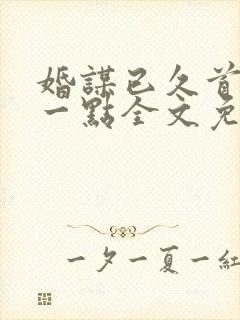 婚謀已久首
一點全文免
一夕一夏一紅